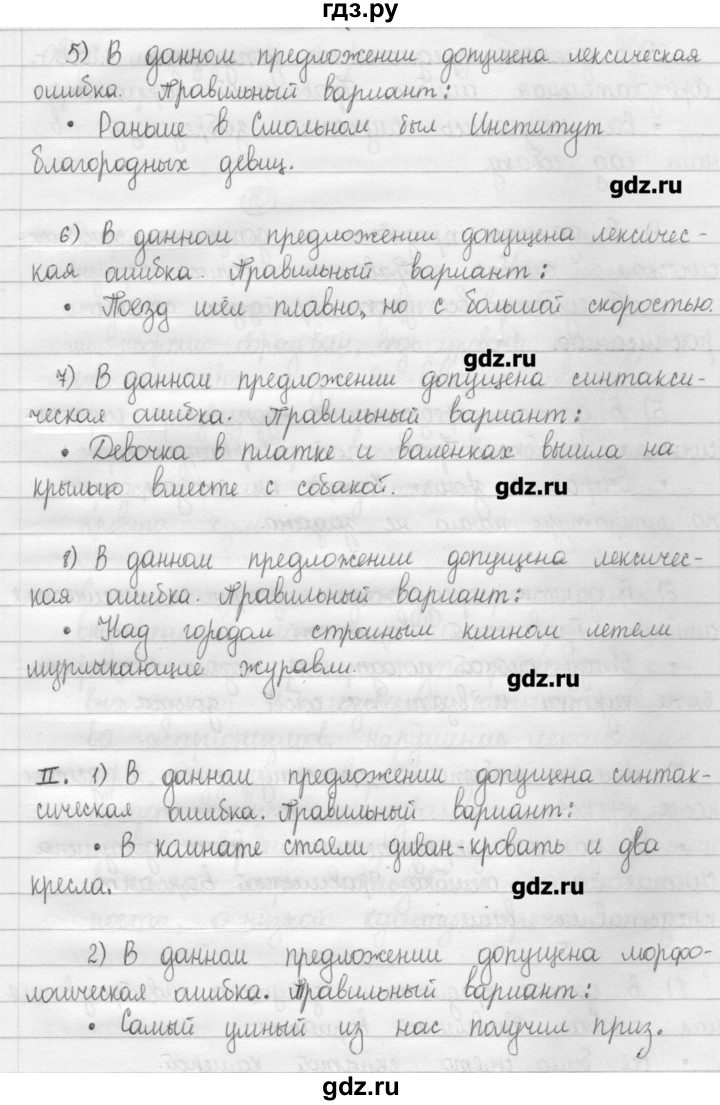 гдз.ру
5) В данном предложении допущена лексическая
ошибка. Правильный вариант:
• Раньше в Смольном был Институт
благородных девиц.
gdz.ru
6) В данном предложении допущена лексичес-
кая ошибка. Правильный вариант:
• Поезд шёл плавно, но с большой скоростью.
gdz.ru
7) В данном предложении допущена синтакси-
ческая ошибка. Правильный вариант:
• Девочка в платке и валенках вышла на
крыльцо вместе с собакой.
gdz.ru
8) В данном предложении допущена лексичес-
кая ошибка. Правильный вариант:
• Над городом стройным клином летели
мурлыкающие журавли.
gdz.ru
II. 1) В данном предложении допущена синтак-
сическая ошибка. Правильный вариант:
• В комнате стояли диван-кровать и два
кресла.
gdz.ru
2) В данном предложении допущена морфо-
логическая ошибка. Правильный вариант:
• Самый умный из нас получил приз.
gdz.ru